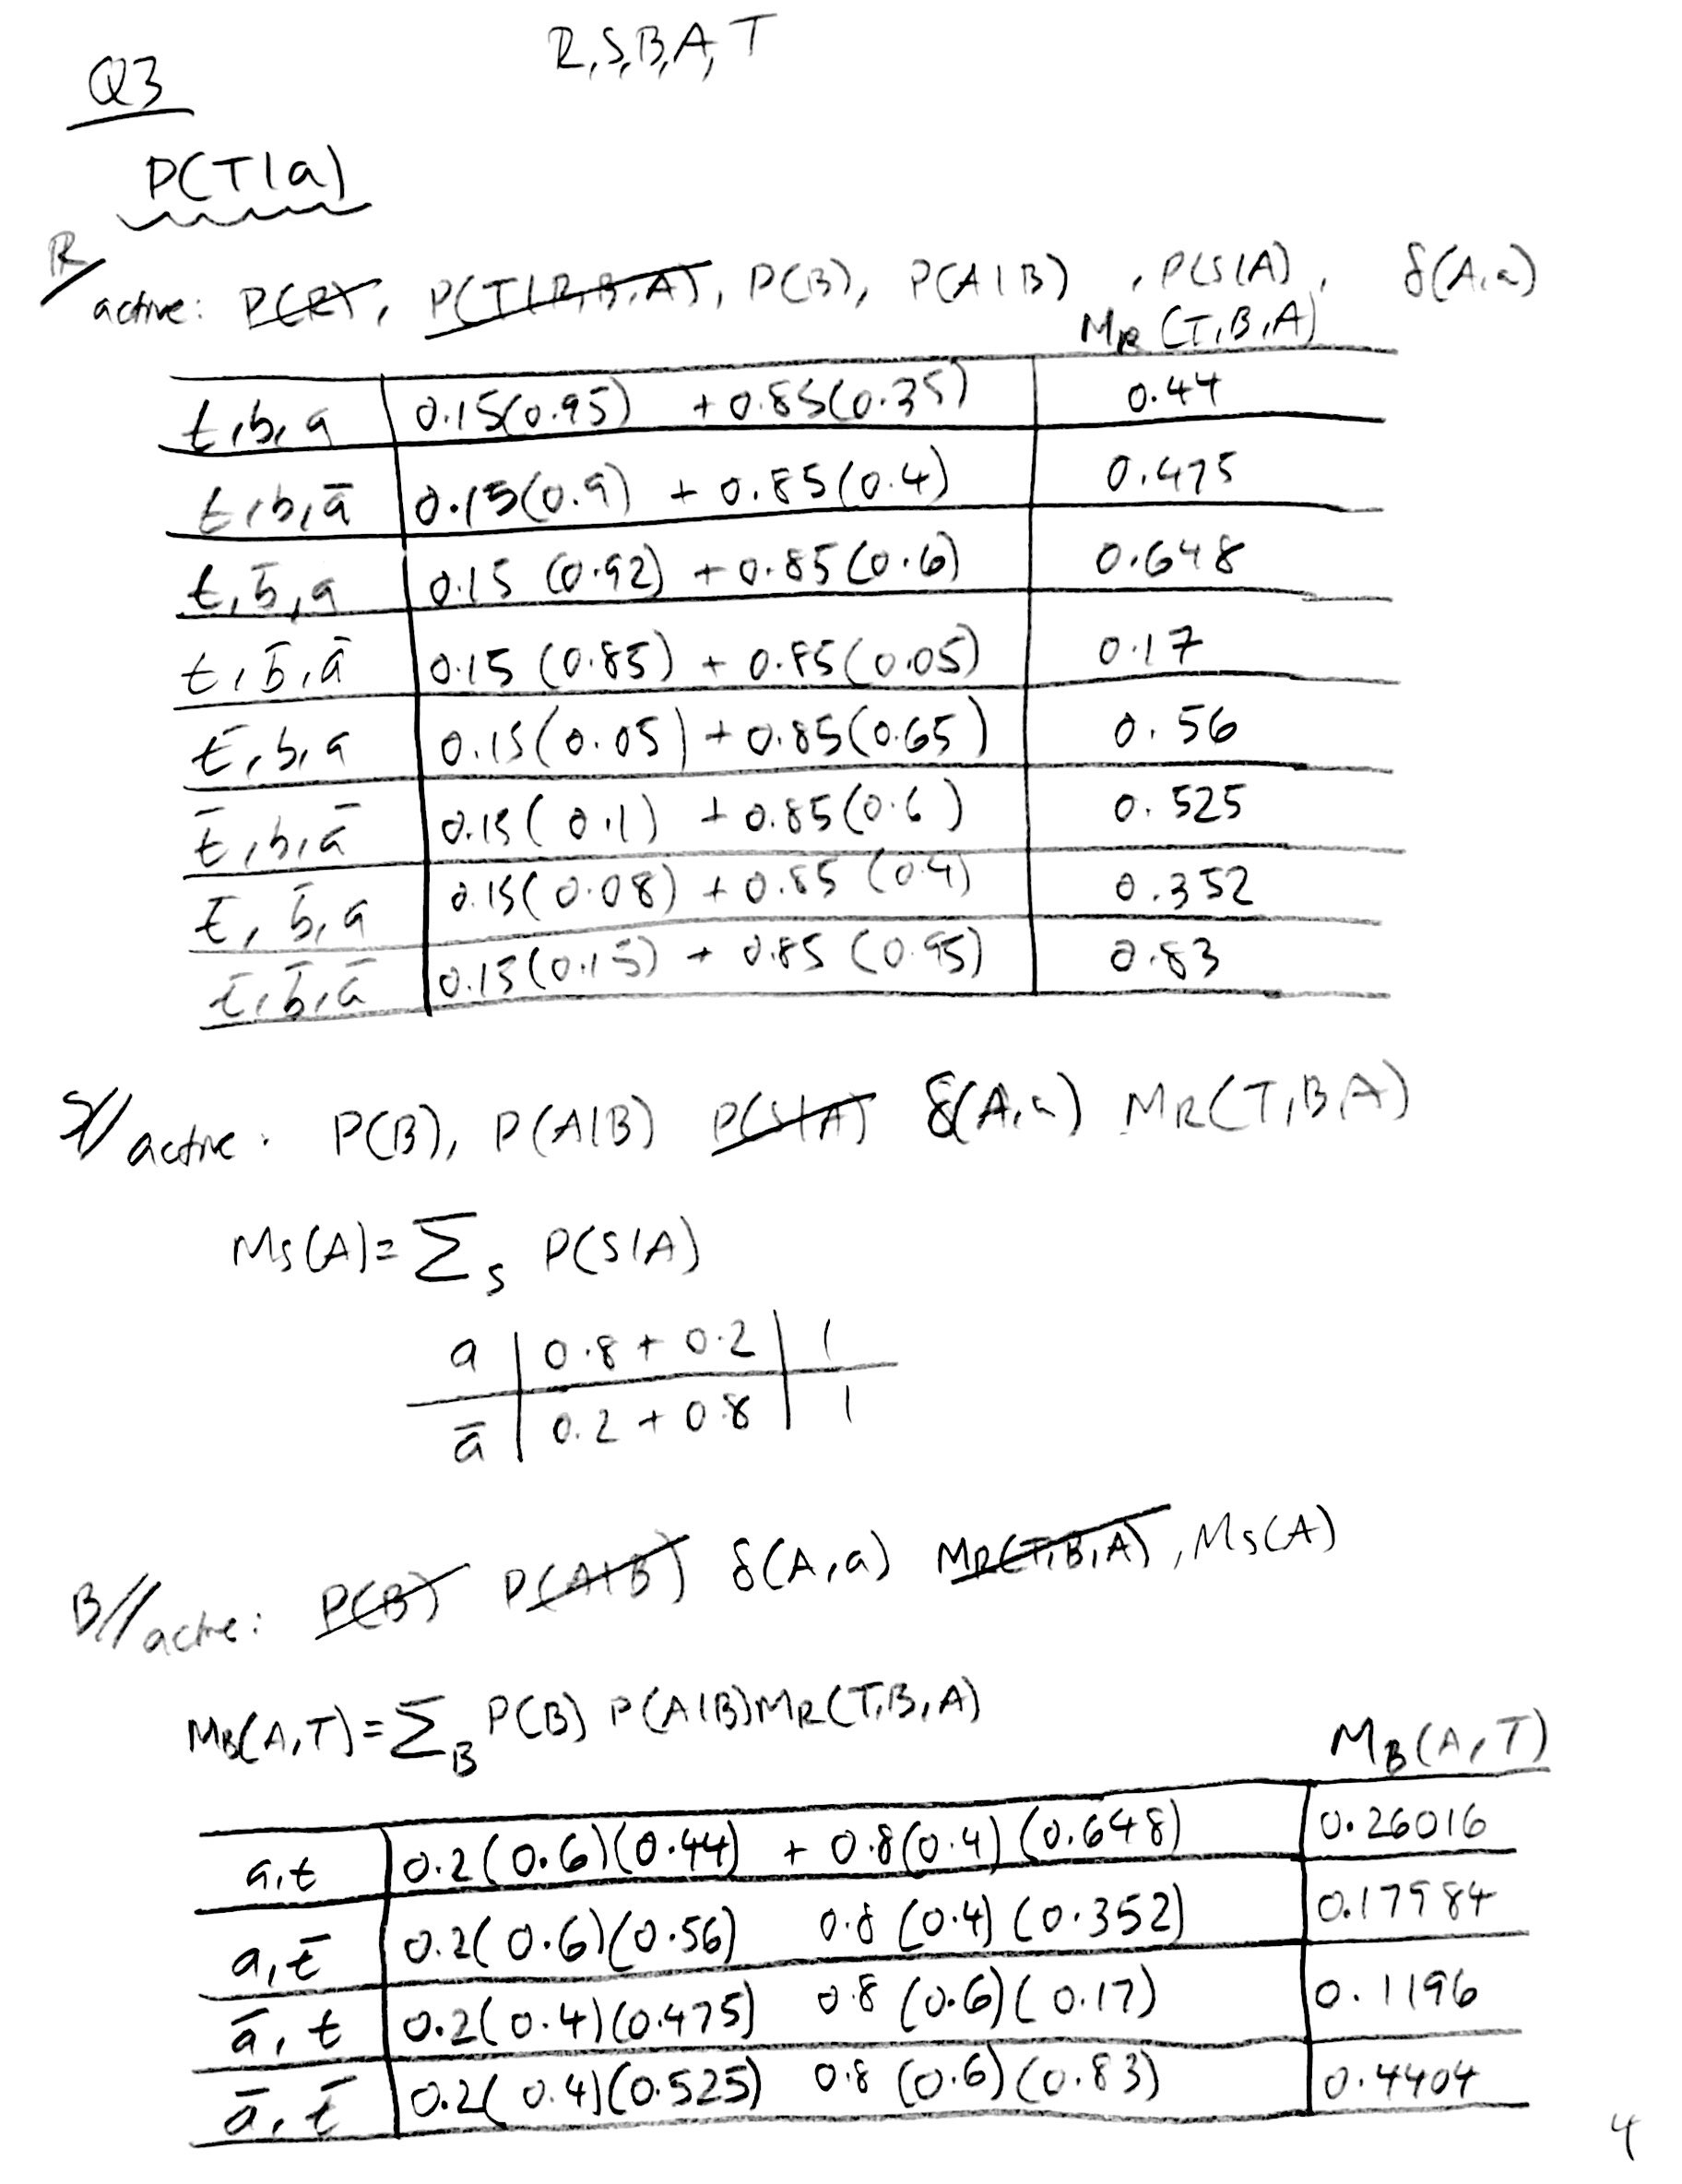 R,S,B,A,T
Q3
P(T|a)
R/ active: P(R), P(T|R,B,A), P(B), P(A|B) , P(S|A), δ(A,a)
M_R (T,B,A)
t,b,a 0.15(0.95) + 0.85(0.35) 0.44
t,b,ā 0.15(0.9) + 0.85(0.4) 0.475
t,b̄,a 0.15 (0.92) + 0.85(0.6) 0.648
t,b̄,ā 0.15 (0.85) + 0.85(0.05) 0.17
t̄,b,a 0.15(0.05) + 0.85(0.65) 0.56
t̄,b,ā 0.15(0.1) + 0.85(0.6) 0.525
t̄,b̄,a 0.15(0.08) + 0.85 (0.4) 0.352
t̄,b̄,ā 0.15(0.15) + 0.85 (0.95) 0.83
S// active: P(B), P(A|B) P(S|A) δ(A,a) M_R(T,B,A)
M_S(A) = Σ_S P(S|A)
a 0.8 + 0.2 1
ā 0.2 + 0.8 1
B// active: P(B) P(A|B) δ(A,a) M_R(T,B,A), M_S(A)
M_B(A,T) = Σ_B P(B) P(A|B) M_R(T,B,A)
M_B(A,T)
a,t 0.2(0.6)(0.44) + 0.8(0.4)(0.648) 0.26016
a,t̄ 0.2(0.6)(0.56) 0.8(0.4)(0.352) 0.17984
ā,t 0.2(0.4)(0.475) 0.8(0.6)(0.17) 0.1196
ā,t̄ 0.2(0.4)(0.525) 0.8(0.6)(0.83) 0.4404
4